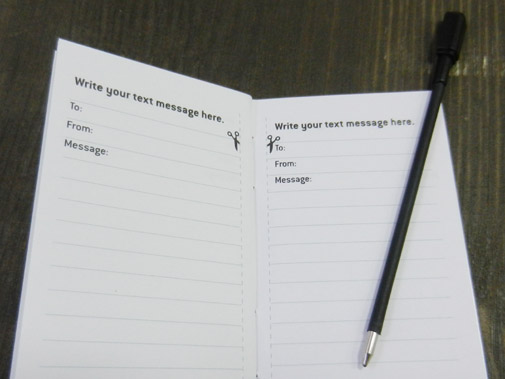 Write your text message here.
To:
From:
Message:
Write your text message here.
To:
From:
Message: